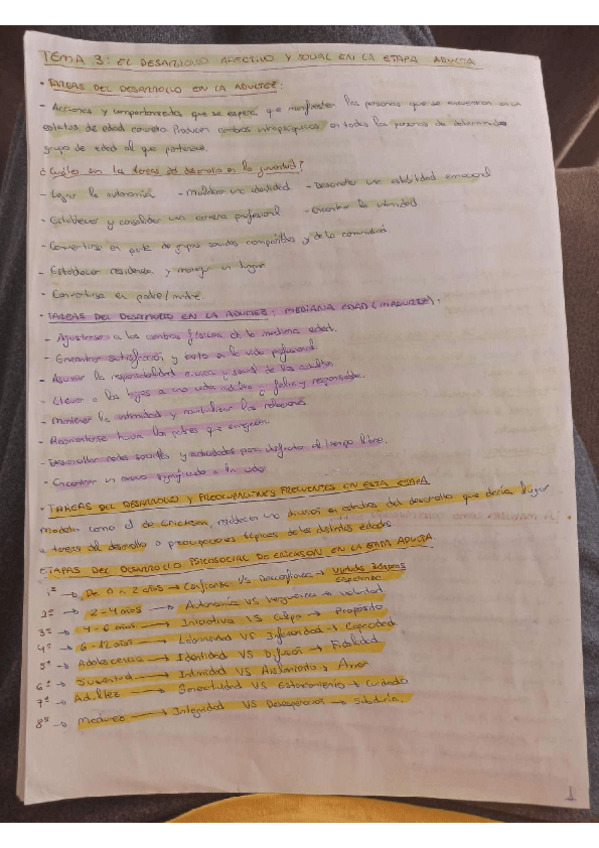 TEMA 3: EL DESARROLLO AFECTIVO Y SOCIAL EN LA ETAPA ADULTA
· TAREAS DEL DESARROLLO EN LA ADULTEZ:
- Acciones y comportamientos que se espera que manifiesten las personas que se encuentran en un
estatus de edad concreto. Producen cambios intrapsíquicos en todas las personas de determinado
grupo de edad al que pertenece.
¿Cuáles son las tareas del desarrollo en la juventud?
- Lograr la autonomía - Moldear una identidad - Desarrollar una estabilidad emocional
- Establecer y consolidar una carrera profesional - Encontrar la intimidad.
- Convertirse en parte de grupos sociales compatibles y de la comunidad
- Establecer residencia y manejar un hogar
- Convertirse en padre/madre
· TAREAS DEL DESARROLLO EN LA ADULTEZ: MEDIANA EDAD (MADUREZ):
- Ajustarse a los cambios físicos de la mediana edad.
- Encontrar satisfacción y éxito a la vida profesional.
- Asumir la responsabilidad cívica y social de los adultos
- Llevar a los hijos a una vida adulta feliz y responsable.
- Mantener la intimidad y las relaciones
- Reorientarse hacia los padres que envejecen.
- Desarrollar redes sociales y actividades para disfrutar el tiempo libre.
- Encontrar un nuevo significado a la vida
· TAREAS DEL DESARROLLO Y PREOCUPACIONES FRECUENTES EN ESTA ETAPA
Modelos como el de Erickson, establecen una división en estadios del desarrollo que daría lugar
a tareas del desarrollo o preocupaciones típicas de las distintas edades
ETAPAS DEL DESARROLLO PSICOSOCIAL DE ERICKSON EN LA ETAPA ADULTA
1ª → De 0 a 2 años → Confianza VS Desconfianza → Virtudes básicas
esperanza
2ª → 2-4 años → Autonomía VS Vergüenza → Voluntad
3ª → 4-6 años → Iniciativa VS Culpa → Propósito
4ª → 6-12 años → Laboriosidad VS Inferioridad → Capacidad
5ª → Adolescencia → Identidad VS Difusión → Fidelidad
6ª → Juventud → Intimidad VS Aislamiento → Amor
7ª → Adultez → Generatividad VS Estancamiento → Cuidado
8ª → Madurez → Integridad VS Desesperación → Sabiduría.
1